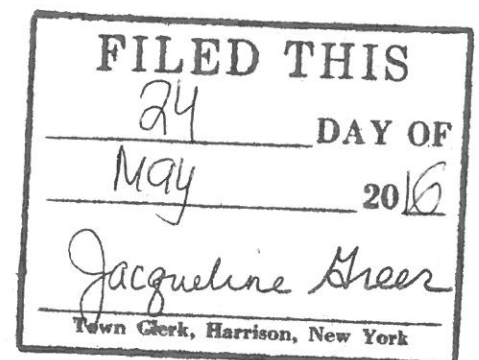 FILED THIS
24 DAY OF
May 2016
Jacqueline Greer
Town Clerk, Harrison, New York